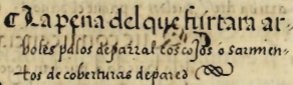 La pena del que furtara ar-
boles palos de parral coscojos o sarmien-
tos de coberturas de pared